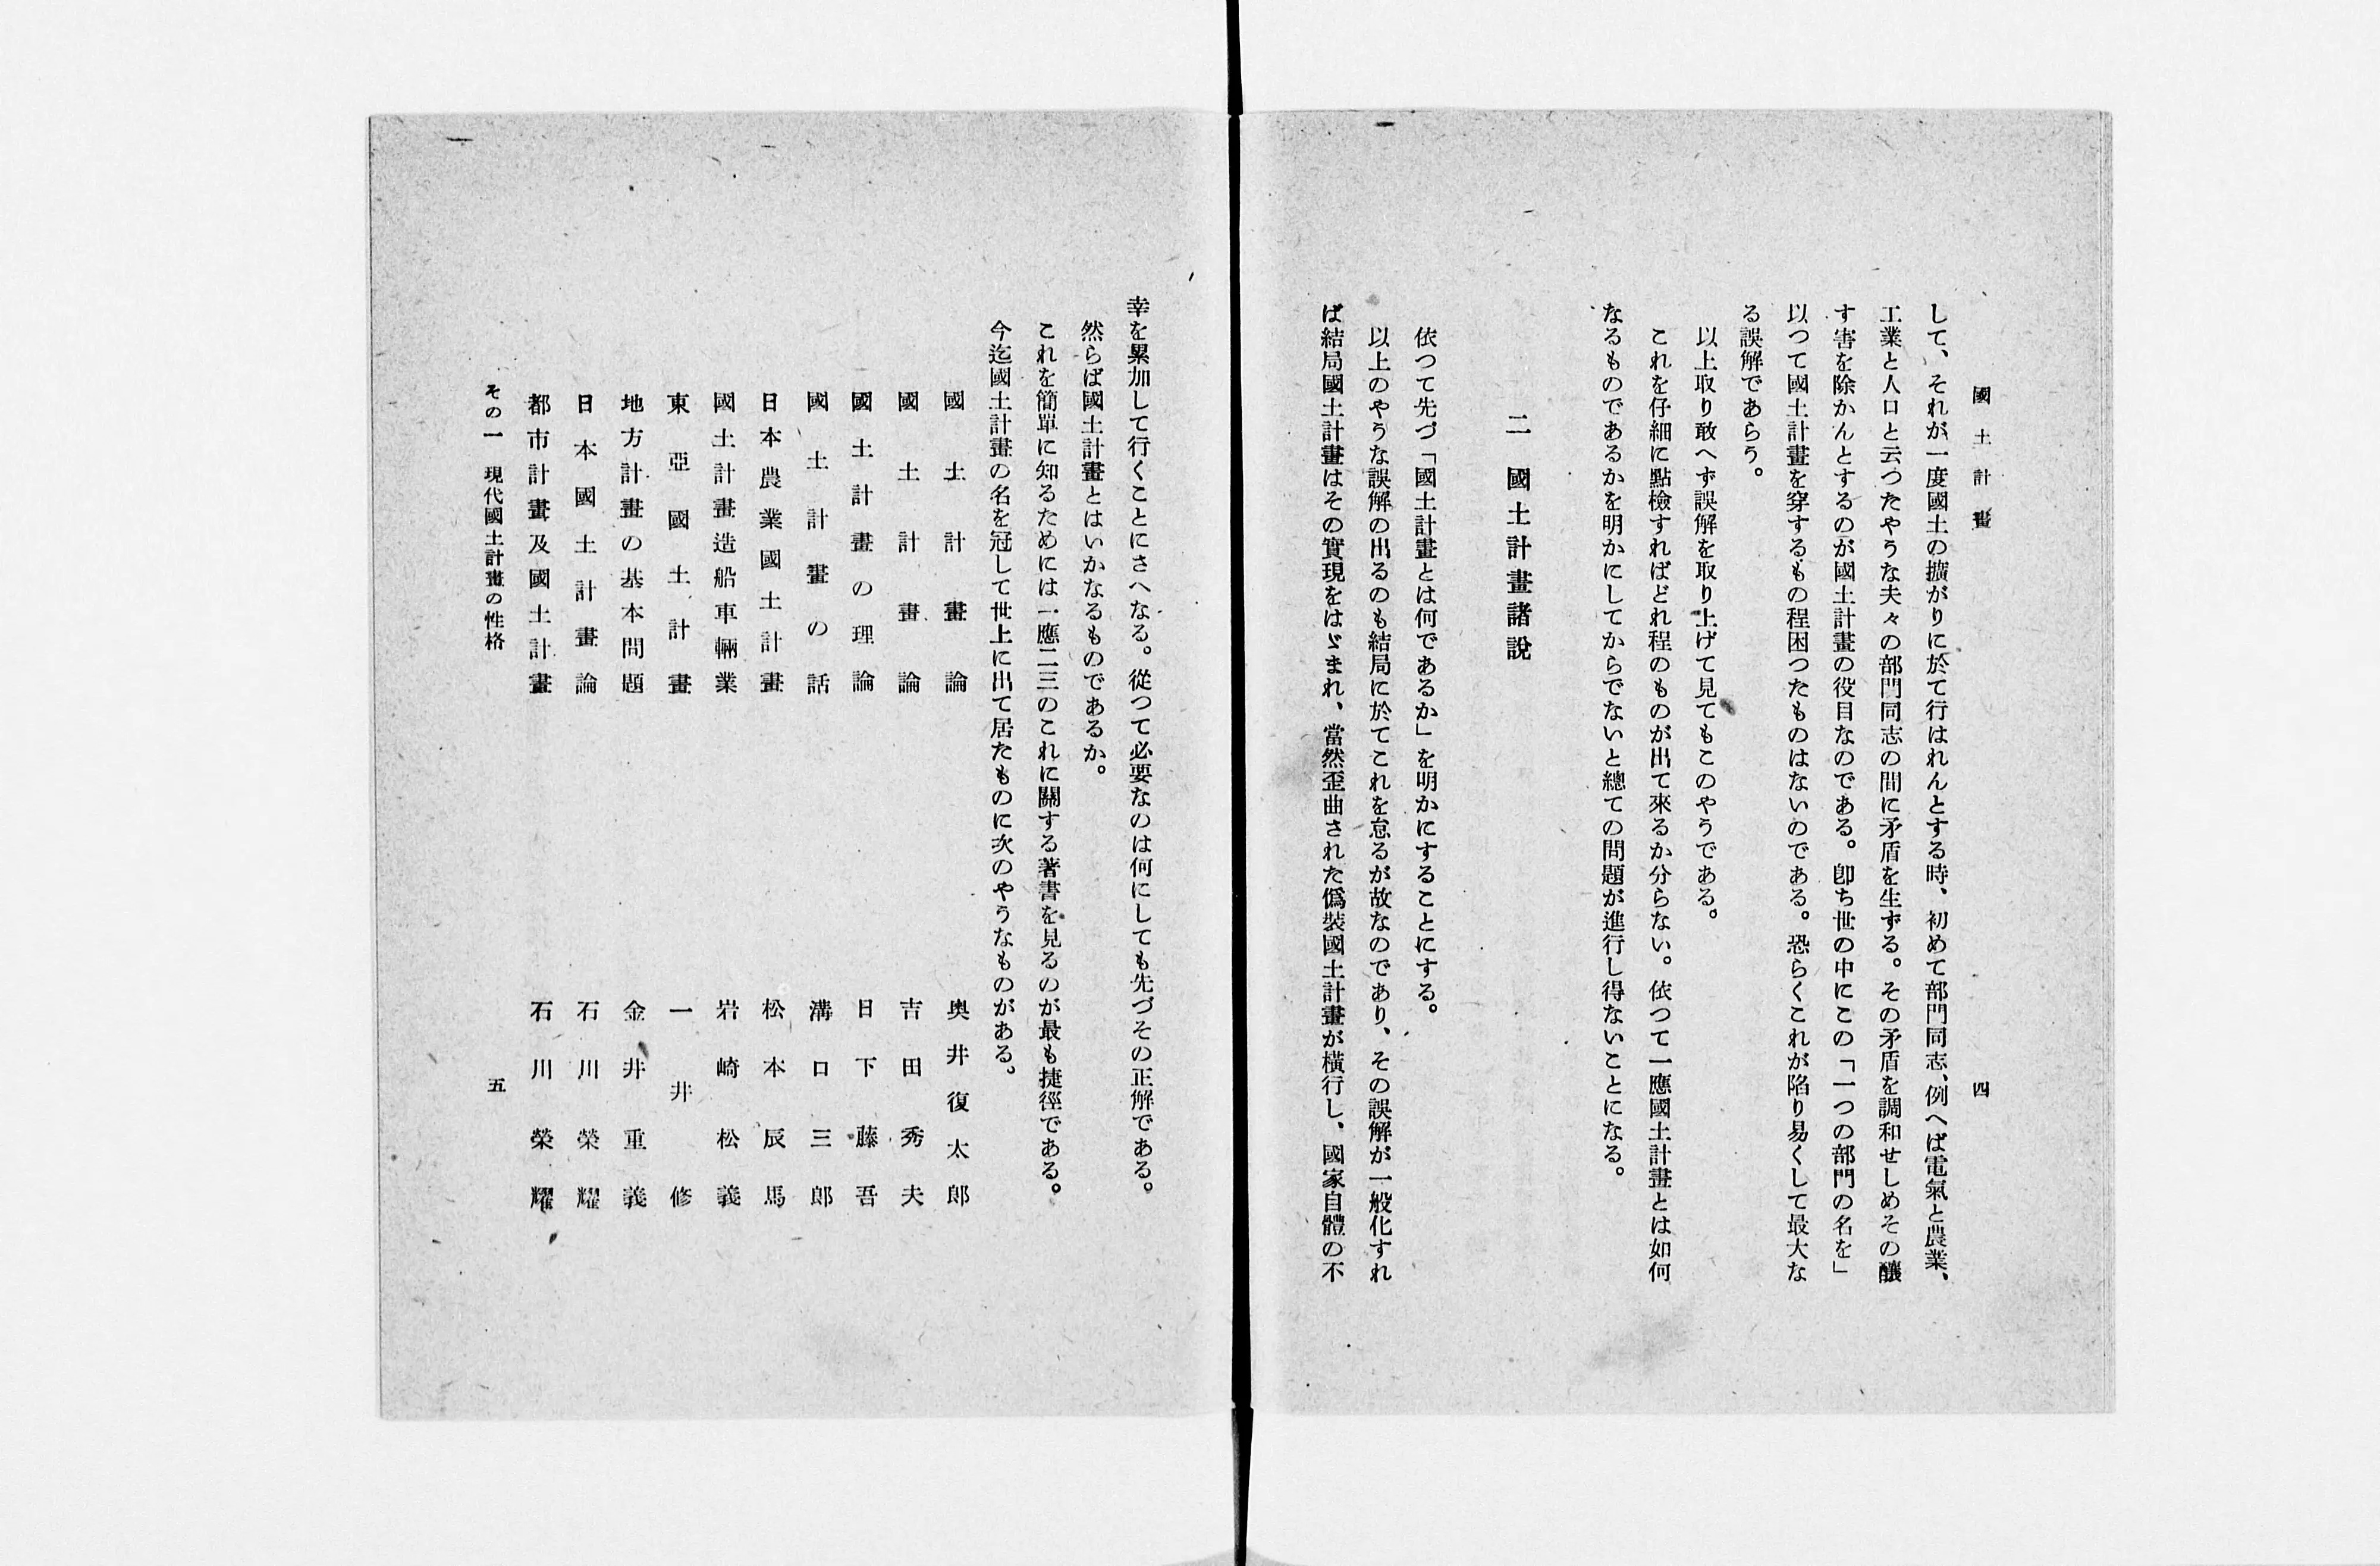 國土計畫
四
して、それが一度國土の擴がりに於て行はれんとする時、初めて部門同志、例へば電氣と農業、
工業と人口と云つたやうな夫々の部門同志の間に矛盾を生ずる。その矛盾を調和せしめその釀
す害を除かんとするのが國土計畫の役目なのである。卽ち世の中にこの「一つの部門の名を」
以つて國土計畫を穿するもの程困つたものはないのである。恐らくこれが陷り易くして最大な
る誤解であらう。
以上取り敢へず誤解を取り上げて見てもこのやうである。
これを仔細に點檢すればどれ程のものが出て來るか分らない。依つて一應國土計畫とは如何
なるものであるかを明かにしてからでないと總ての問題が進行し得ないことになる。
二 國土計畫諸說
依つて先づ「國土計畫とは何であるか」を明かにすることにする。
以上のやうな誤解の出るのも結局に於てこれを怠るが故なのであり、その誤解が一般化すれ
ば結局國土計畫はその實現をはゞまれ、當然歪曲された僞裝國土計畫が橫行し、國家自體の不
幸を累加して行くことにさへなる。從つて必要なのは何にしても先づその正解である。
然らば國土計畫とはいかなるものであるか。
これを簡單に知るためには一應二三のこれに關する著書を見るのが最も捷徑である。
今迄國土計畫の名を冠して世上に出て居たものに次のやうなものがある。
國土計畫論 奥井復太郎
國土計畫論 吉田秀夫
國土計畫の理論 日下藤吾
國土計畫の話 溝口三郎
日本農業國土計畫 松本辰馬
國土計畫造船車輛業 岩崎松義
東亞國土計畫 一井修
地方計畫の基本問題 金井重義
日本國土計畫論 石川榮耀
都市計畫及國土計畫 石川榮耀
その一 現代國土計畫の性格
五